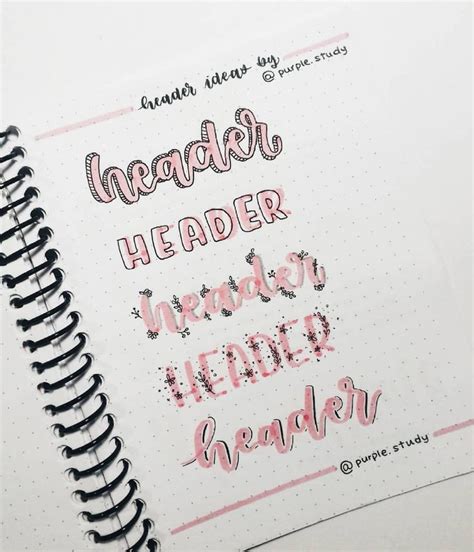 header ideas by
@purple.study
header
HEADER
header
HEADER
header
@purple.study